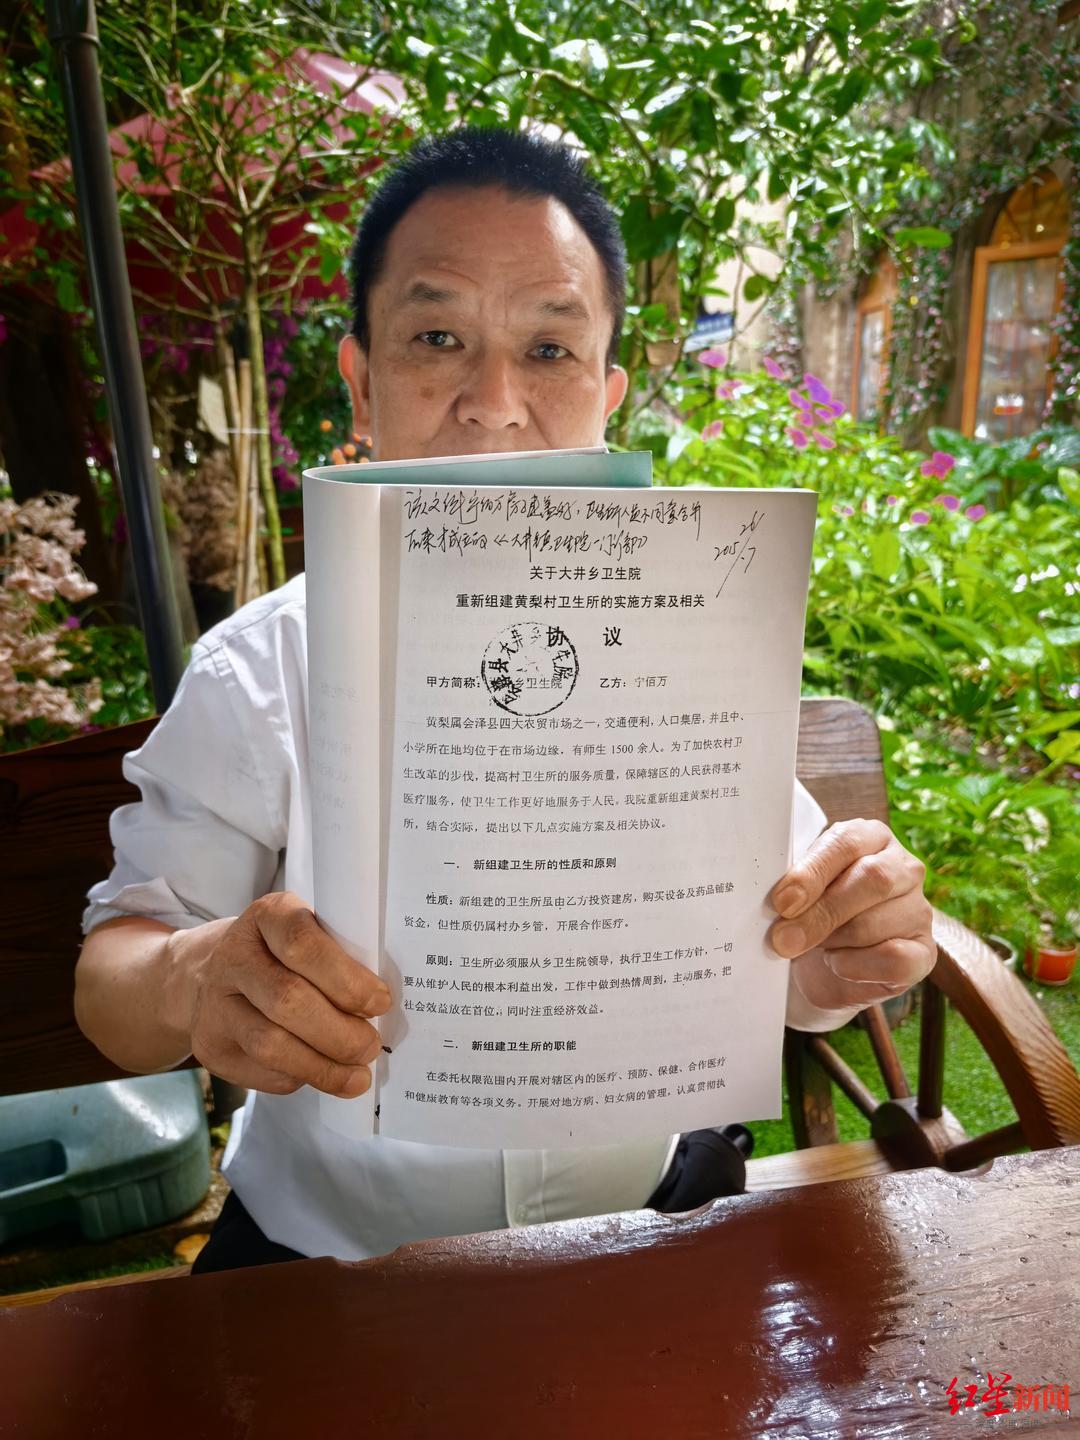 关于大井乡卫生院
重新组建黄梨村卫生所的实施方案及相关
协 议
甲方简称： 乡卫生院 乙方：宁佰万
黄梨属会泽县四大农贸市场之一，交通便利，人口集居，并且中、
小学所在地均位于在市场边缘，有师生 1500 余人。为了加快农村卫
生改革的步伐，提高村卫生所的服务质量，保障辖区的人民获得基本
医疗服务，使卫生工作更好地服务于人民。我院重新组建黄梨村卫生
所，结合实际，提出以下几点实施方案及相关协议。
一． 新组建卫生所的性质和原则
性质：新组建的卫生所虽由乙方投资建房，购买设备及药品铺垫
资金，但性质仍属村办乡管，开展合作医疗。
原则：卫生所必须服从乡卫生院领导，执行卫生工作方针，一切
要从维护人民的根本利益出发，工作中做到热情周到，主动服务，把
社会效益放在首位，同时注重经济效益。
二． 新组建卫生所的职能
在委托权限范围内开展对辖区内的医疗、预防、保健、合作医疗
和健康教育等各项义务。开展对地方病、妇女病的管理，认真贯彻执
1
红星新闻